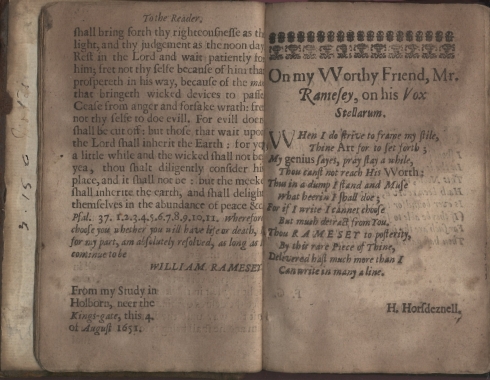 To the Reader.
shall bring forth thy righteousnesse as the
light, and thy judgement as the noon day
Rest in the Lord and wait patiently for
him; fret not thy selfe because of him that
prospereth in his way, because of the man
that bringeth wicked devices to passe.
Cease from anger and forsake wrath: fret
not thy selfe to doe evill. For evill doers
shall be cut off: but those that wait upon
the Lord shall inherit the Earth: for yet
a little while and the wicked shall not be
yea, thou shalt diligently consider his
place, and it shall not be: but the meeke
shall inherite the earth, and shall delight
themselves in the abundance of peace &c.
Psal. 37. 1.2.3.4.5.6.7.8.9.10.11. Wherefore
choose you whether you will have life or death,
for my part, am absolutely resolved, as long as I
continue to be
WILLIAM RAMESEY
From my Study in
Holborn, neer the
Kings-gate, this 4.
of August 1651.
On my Worthy Friend, Mr.
Ramesey, on his Vox
Stellarum.
WHen I do strive to frame my stile,
Thine Art for to set forth;
My genius sayes, pray stay a while,
Thou canst not reach His Worth:
Thus in a dump I stand and Muse
What herein I shall doe;
For if I write I cannot choose
But much detract from You.
Thou RAMESEY to posterity,
By this rare Piece of Thine,
Delevered hast much more than I
Can write in many a line.
H. Horsdeznell.